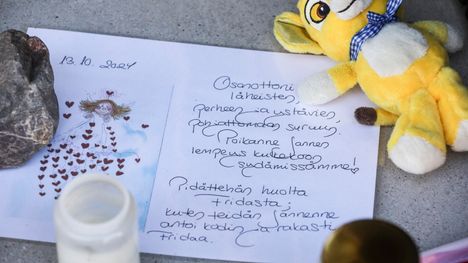 13.10.2024
Osanottoni
läheisten,
perheen ja ystävien,
pohjattomaan suruun.
Poikanne Jannen
lempeus kulkekoon
sydämissämme!
Pidättehän huolta
Fridasta;
kuten teidän Jannenne
antoi kodin ja rakasti
Fridaa.